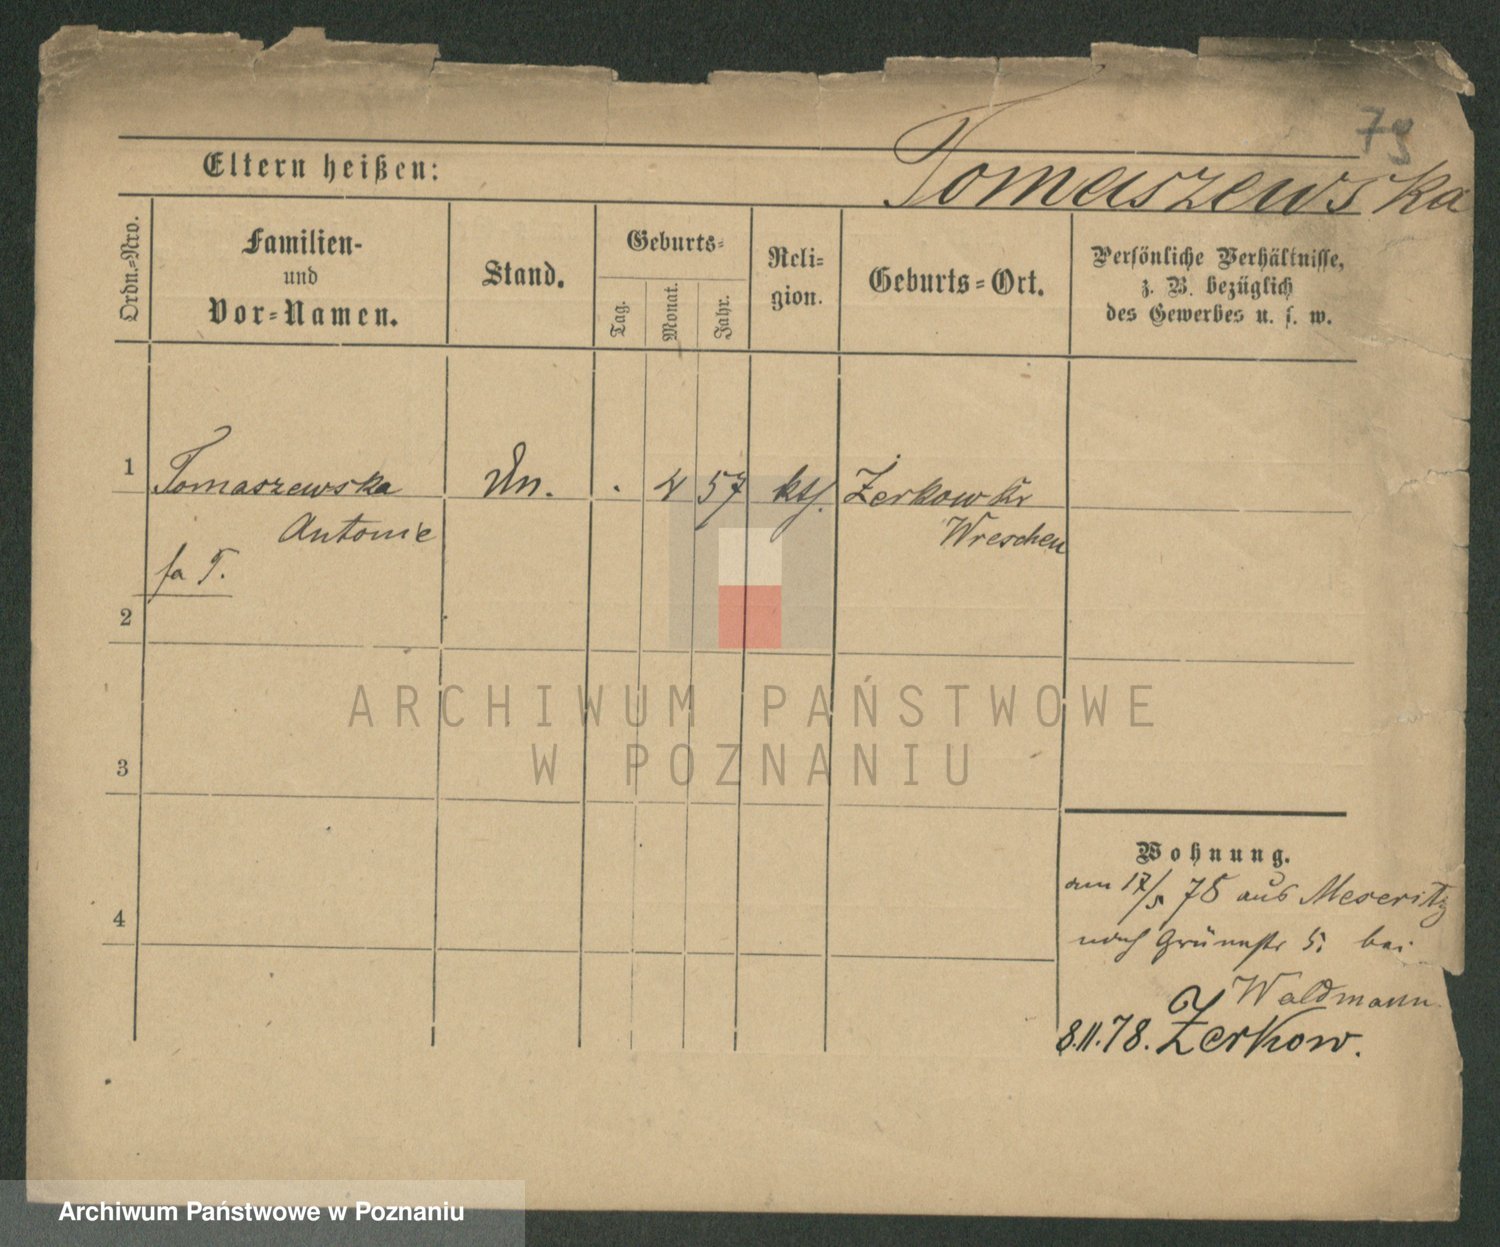 79
Eltern heißen:
Tomaszewska
Ordn.-Nro.
Familien-
und
Vor-Namen.
Stand.
Geburts-
Tag.
Monat.
Jahr.
Reli-
gion.
Geburts-Ort.
Persönliche Verhältnisse,
z. B. bezüglich
des Gewerbes u. s. w.
1
Tomaszewska
Antonie
fa T.
Un. . 2 57 kth. Żerkow Kr
Wreschen
2
3
4
ARCHIWUM PAŃSTWOWE
W POZNANIU
Wohnung.
am 17/5 78 aus Meseritz
nach Grünestr 5. bei
Waldmann
8.11.78. Zerkow.
Archiwum Państwowe w Poznaniu